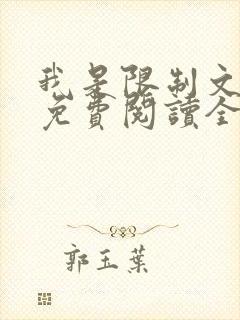 我是限制文
免費閱讀全
郭玉葉